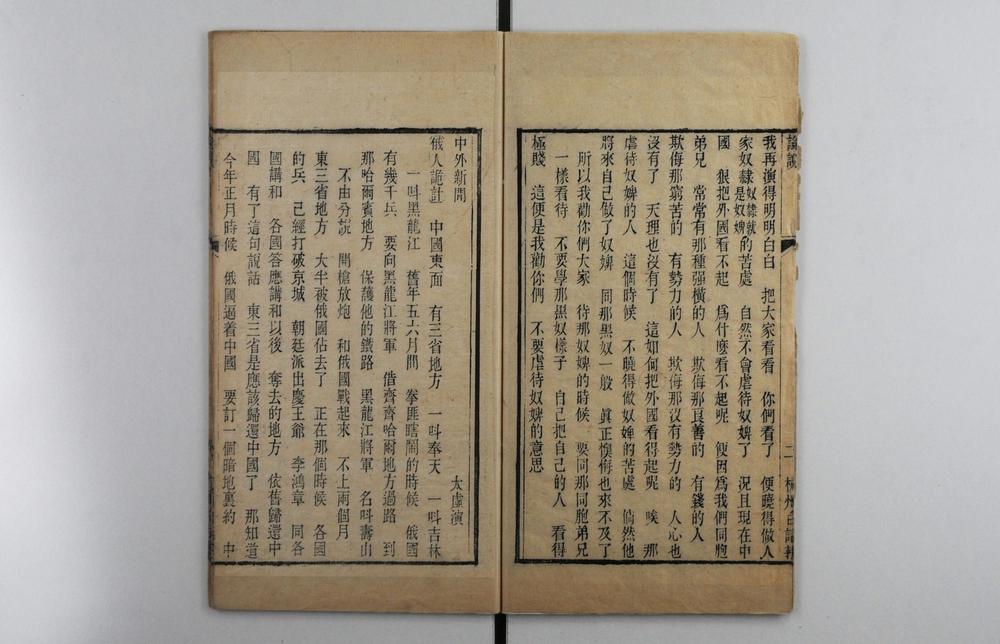 論說 二 杭州白話報
我再演得明明白白 把大家看看 你們看了 便曉得做人
家奴隸奴隸就是奴婢的苦處 自然不會虐待奴婢了 況且現在中
國 狠把外國看不起 爲什麼看不起呢 便因爲我們同胞
弟兄 常常有那種强橫的人 欺侮那良善的 有錢的人
欺侮那窮苦的 有勢力的人 欺侮那沒有勢力的 人心也
沒有了 天理也沒有了 這如何把外國看得起呢 唉 那
虐待奴婢的人 這個時候 不曉得做奴婢的苦處 倘然他
將來自己做了奴婢 同那黑奴一般 眞正懊悔也來不及了
所以我勸你們大家 待那奴婢的時候 要同那同胞弟兄
一樣看待 不要學那黑奴樣子 自己把自己的人 看得
極賤 這便是我勸你們 不要虐待奴婢的意思
中外新聞 太虛演
俄人詭計 中國東面 有三省地方 一呌奉天 一呌吉林
一呌黑龍江 舊年五六月間 拳匪瞎鬧的時候 俄國
有幾千兵 要向黑龍江將軍 借齊齊哈爾地方過路 到
那哈爾賓地方 保護他的鐵路 黑龍江將軍 名呌壽山
不由分說 開槍放炮 和俄國戰起來 不上兩個月
東三省地方 大半被俄國佔去了 正在那個時候 各國
的兵 已經打破京城 朝廷派出慶王爺 李鴻章 同各
國講和 各國答應講和以後 奪去的地方 依舊歸還中
國 有了這句說話 東三省是應該歸還中國了 那知道
今年正月時候 俄國逼着中國 要訂一個暗地裏約 中